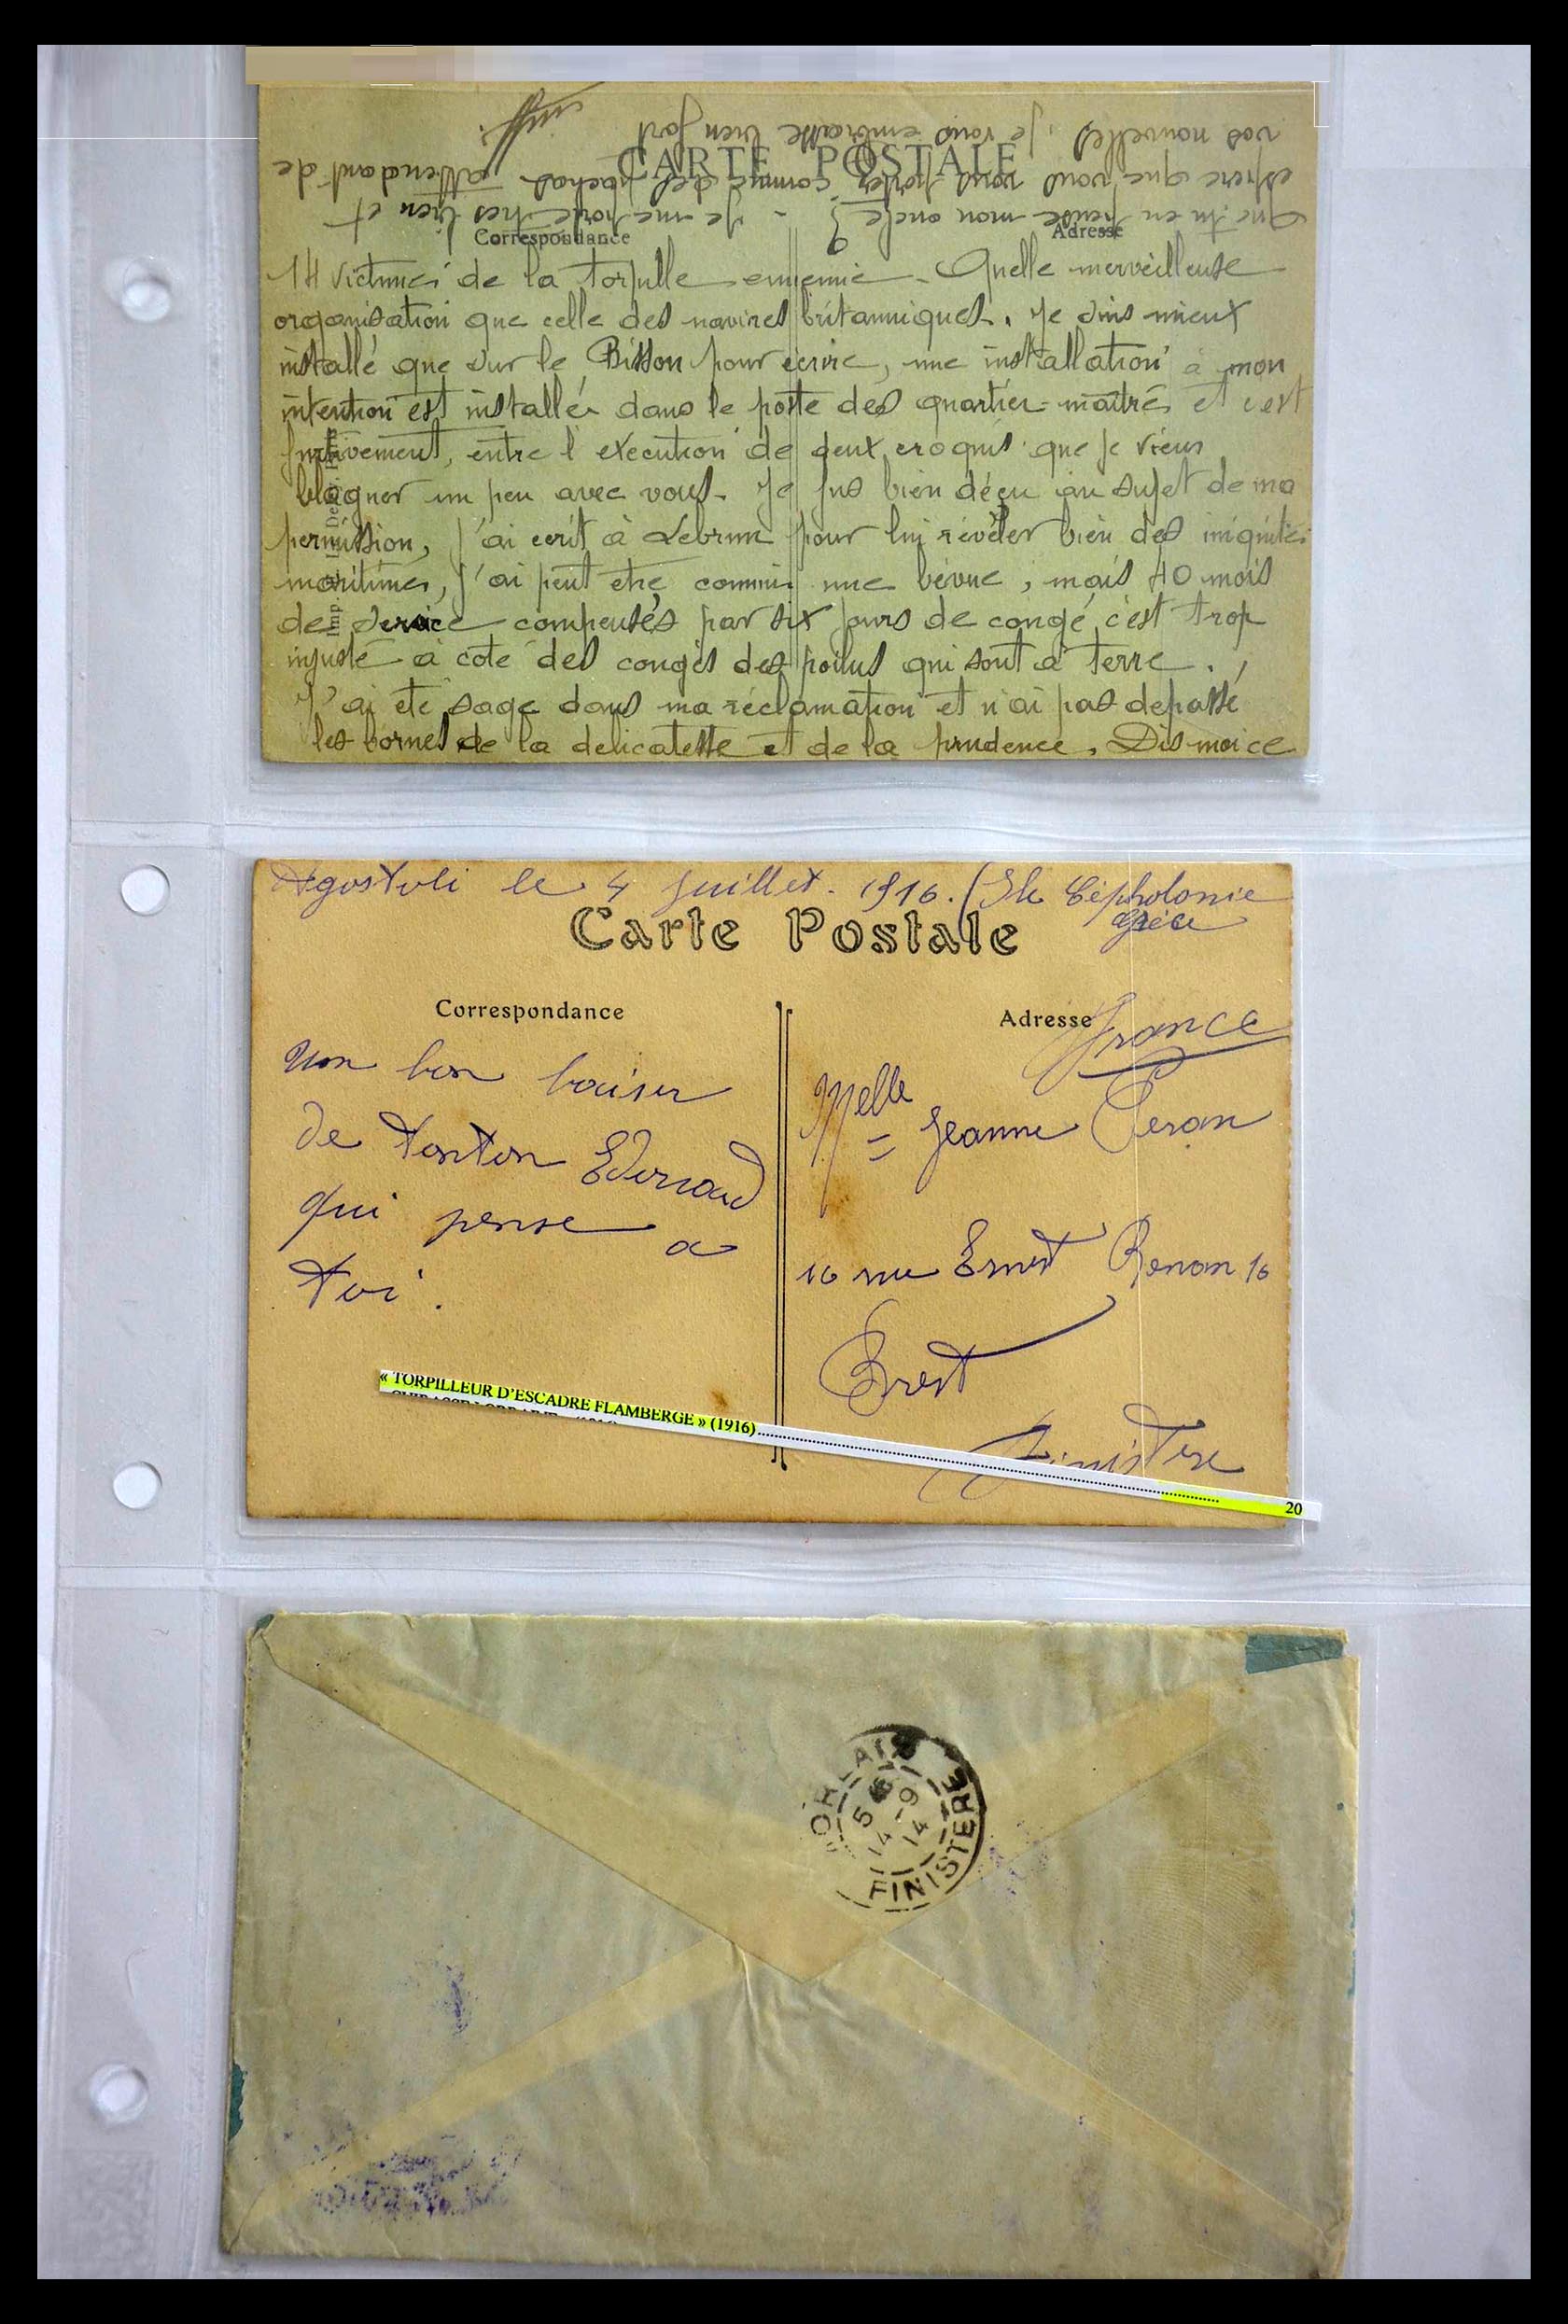 CARTE POSTALE
Correspondance
Adresse
14 victimes de la torpille ennemie - Quelle merveilleuse
organisation que celle des navires britanniques. Je suis mieux
installé que sur le Bisson pour écrire, une installation à mon
intention est installée dans le poste des quartier-maîtres et c'est
furtivement, entre l'exécution de deux croquis que je viens
blaguer un peu avec vous. Je fus bien déçu au sujet de ma
permission, j'ai ecrit à Lebrun pour lui révéler bien des iniquités
maritimes, j'ai peut etre commis une bévue ; mais 40 mois
de service compensés par six jours de congé c'est trop
injuste à coté des congés des poilus qui sont à terre.
J'ai été sage dans ma réclamation et n'ai pas depassé
les bornes de la delicatesse et de la prudence. Dis moi ce
que tu en pense mon oncle ? - Je me porte très bien et
espere que vous vous portez comme des pachas. Attendant de
vos nouvelles, je vous embrasse bien fort
Agostoli le 4 Juillet. 1916. (Ile Cépholonie
Grèce
Carte Postale
Correspondance
Adresse
France
un bon baiser
de tonton Edouard
qui pense a
toi.
Melle Jeanne Peran
16 rue Ernest Renan 16
Brest
Finistere
« TORPILLEUR D'ESCADRE FLAMBERGE » (1916) 20
ORLAIX
5
14 -9
14
FINISTERE